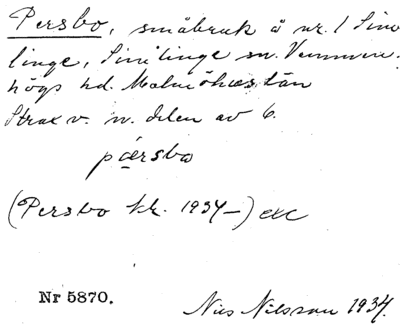 Persbo, småbruk å nr. 1 Sim-
linge, Simlinge sn. Vemmen-
högs hd. Malmöhus län
Strax v. n. delen av 6.
pærsbo
(Persbo kr. 1934–)
Nr 5870.
Nils Nilsson 1934.